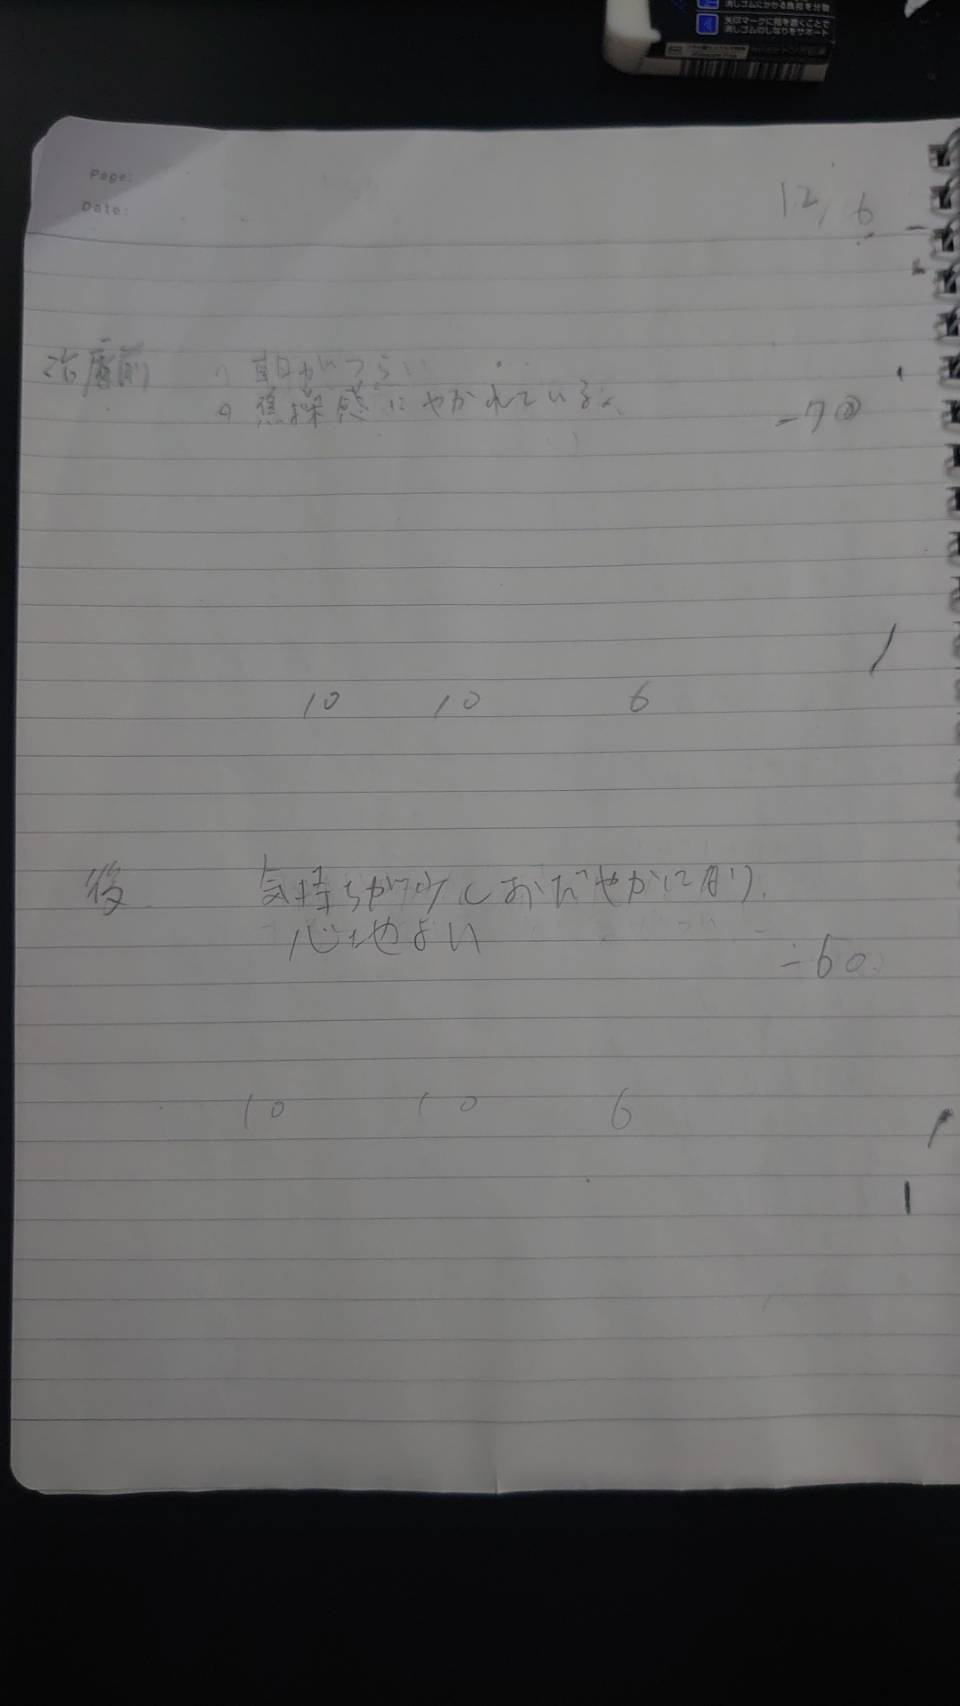 消しゴムにかかる負担を分散
矢印マークに指を置くことで
消しゴムのしなりをサポート
Page:
Date:
12, 6
治療前 朝がつらい
焦燥感にやかれている
-70
10 10 6
後 気持ちが少しおだやかになり
心地よい
-60
10 10 6